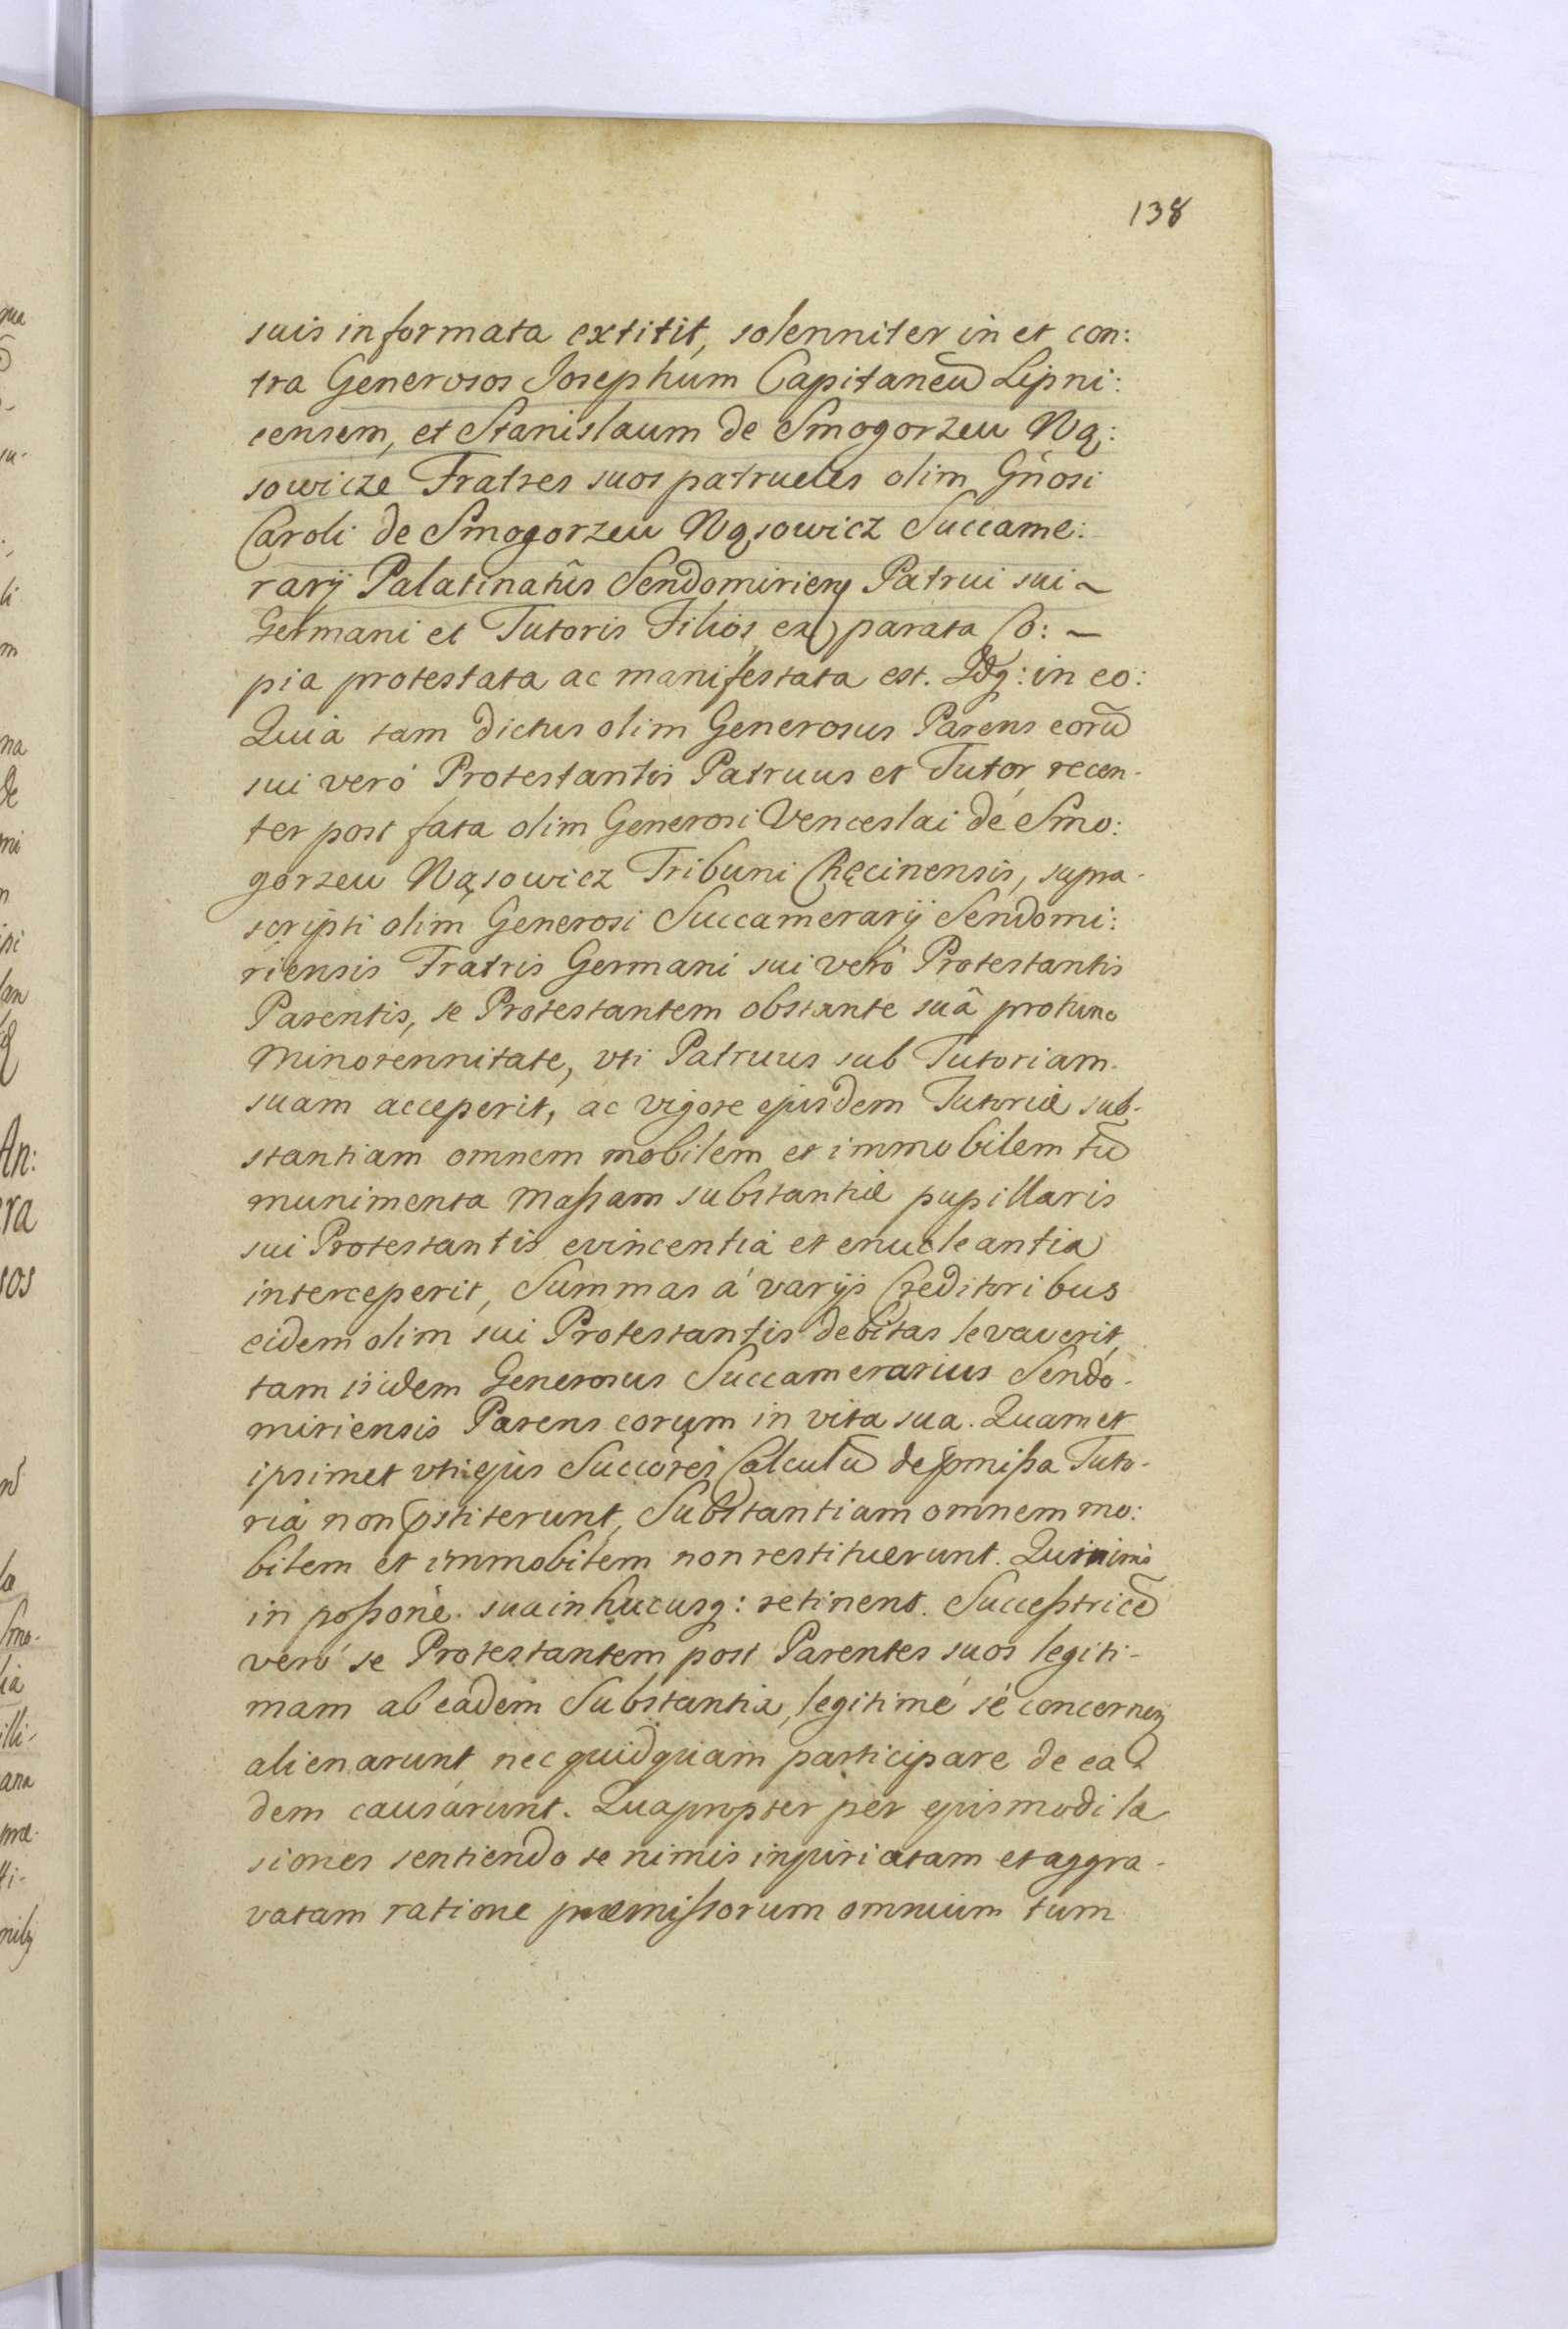 138
suis informata extitit, solenniter in et con:
tra Generosos Josephum Capitaneũ Lipni:
censem, et Stanislaum de Smogorzew Wą:
sowicze Fratres suos patrueles olim Gñosi
Caroli de Smogorzew Wąsowicz Succame:
rarij Palatinatûs Sendomirien Patrui sui ~
Germani et Tutoris Filios ea parata Co: ~
pia protestata ac manifestata est. Idq: in eo:
Quia tam dictus olim Generosus Parens eorũ
sui veró Protestantis Patruus et Tutor recen-
ter post fata olim Generosi Venceslai de Smo:
gorzew Wąsowicz Tribuni Chęcinensis, supra-
scripti olim Generosi Succamerarij Sendomi:
riensis Fratris Germani sui veró Protestantis
Parentis, se Protestantem obstante suâ protunc
Minorennitate, vti Patruus sub Tutoriam
suam acceperit, ac vigore ejusdem Tutoriæ sub-
stantiam omnem mobilem et immobilem tũ
munimenta Maßam substantiæ pupillaris
sui Protestantis evincentia et enucleantia
interceperit, Summas á varijs Creditoribus
eidem olim sui Protestantis debitas levaverit,
tam isidem Generosus Succamerarius Sendo-
miriensis Parens eorum in vita sua. Quam et
ipsimet vti ejus Succores Calculũ de pmißa Tuto-
ria non pstiterunt, Substantiam omnem mo:
bilem et immobilem non restituerunt. Quinimo
in poßone sua in hucusq: retinent. Succeßtricẽ
veró se Protestantem post Parentes suos legiti-
mam ab eâdem Substantia, legitimé se concernen
alienarunt nec quidquam participare de ea
dem causarunt. Quapropter per ejusmodi læ
siones sentiendo se nimis injuriatam et aggra-
vatam ratione præmißorum omnium tum